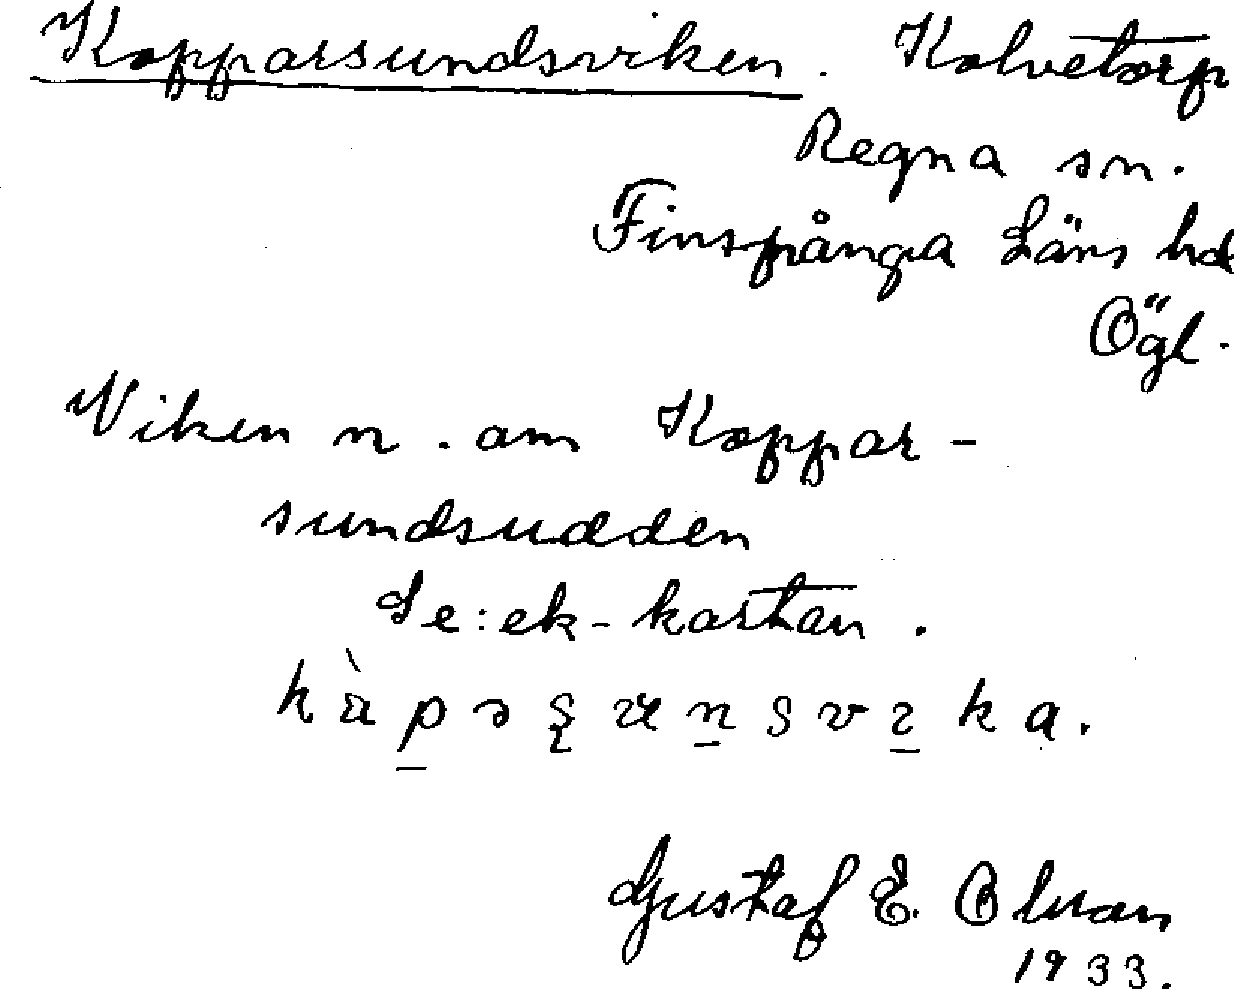 Kopparsundsviken. Kolvetorp
Regna sn.
Finspånga Läns hd
Ögl.
Viken n. om Koppar-
sundsudden
Se: ek-kartan.
Gustaf E.
1933.